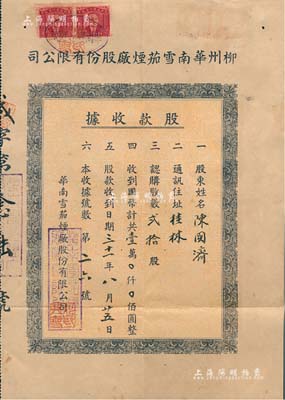 柳州華南雪茄煙廠股份有限公司
股款收據
一 股東姓名 陳國濟
二 通訊住址 桂林
三 認購股數 弍拾股
四 收到國幣計共壹萬0仟0佰圓整
五 股款收到日期三十一年八月廿五日
六 本收據號數 第二六號
華南雪茄煙廠股份有限公司
上海陽明拍賣